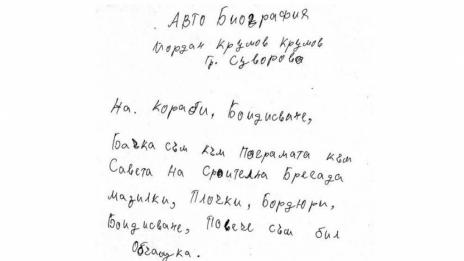 Авто Биография
Йордан Крумов Крумов
гр. Суворово
На. Кораби, Боидисване,
Бачка съм към Пограмата към
Савета на Сроителна Брегада
мазилки, Плочки, Бордюри,
Боидисване, Повече съм бил
Обчашка.